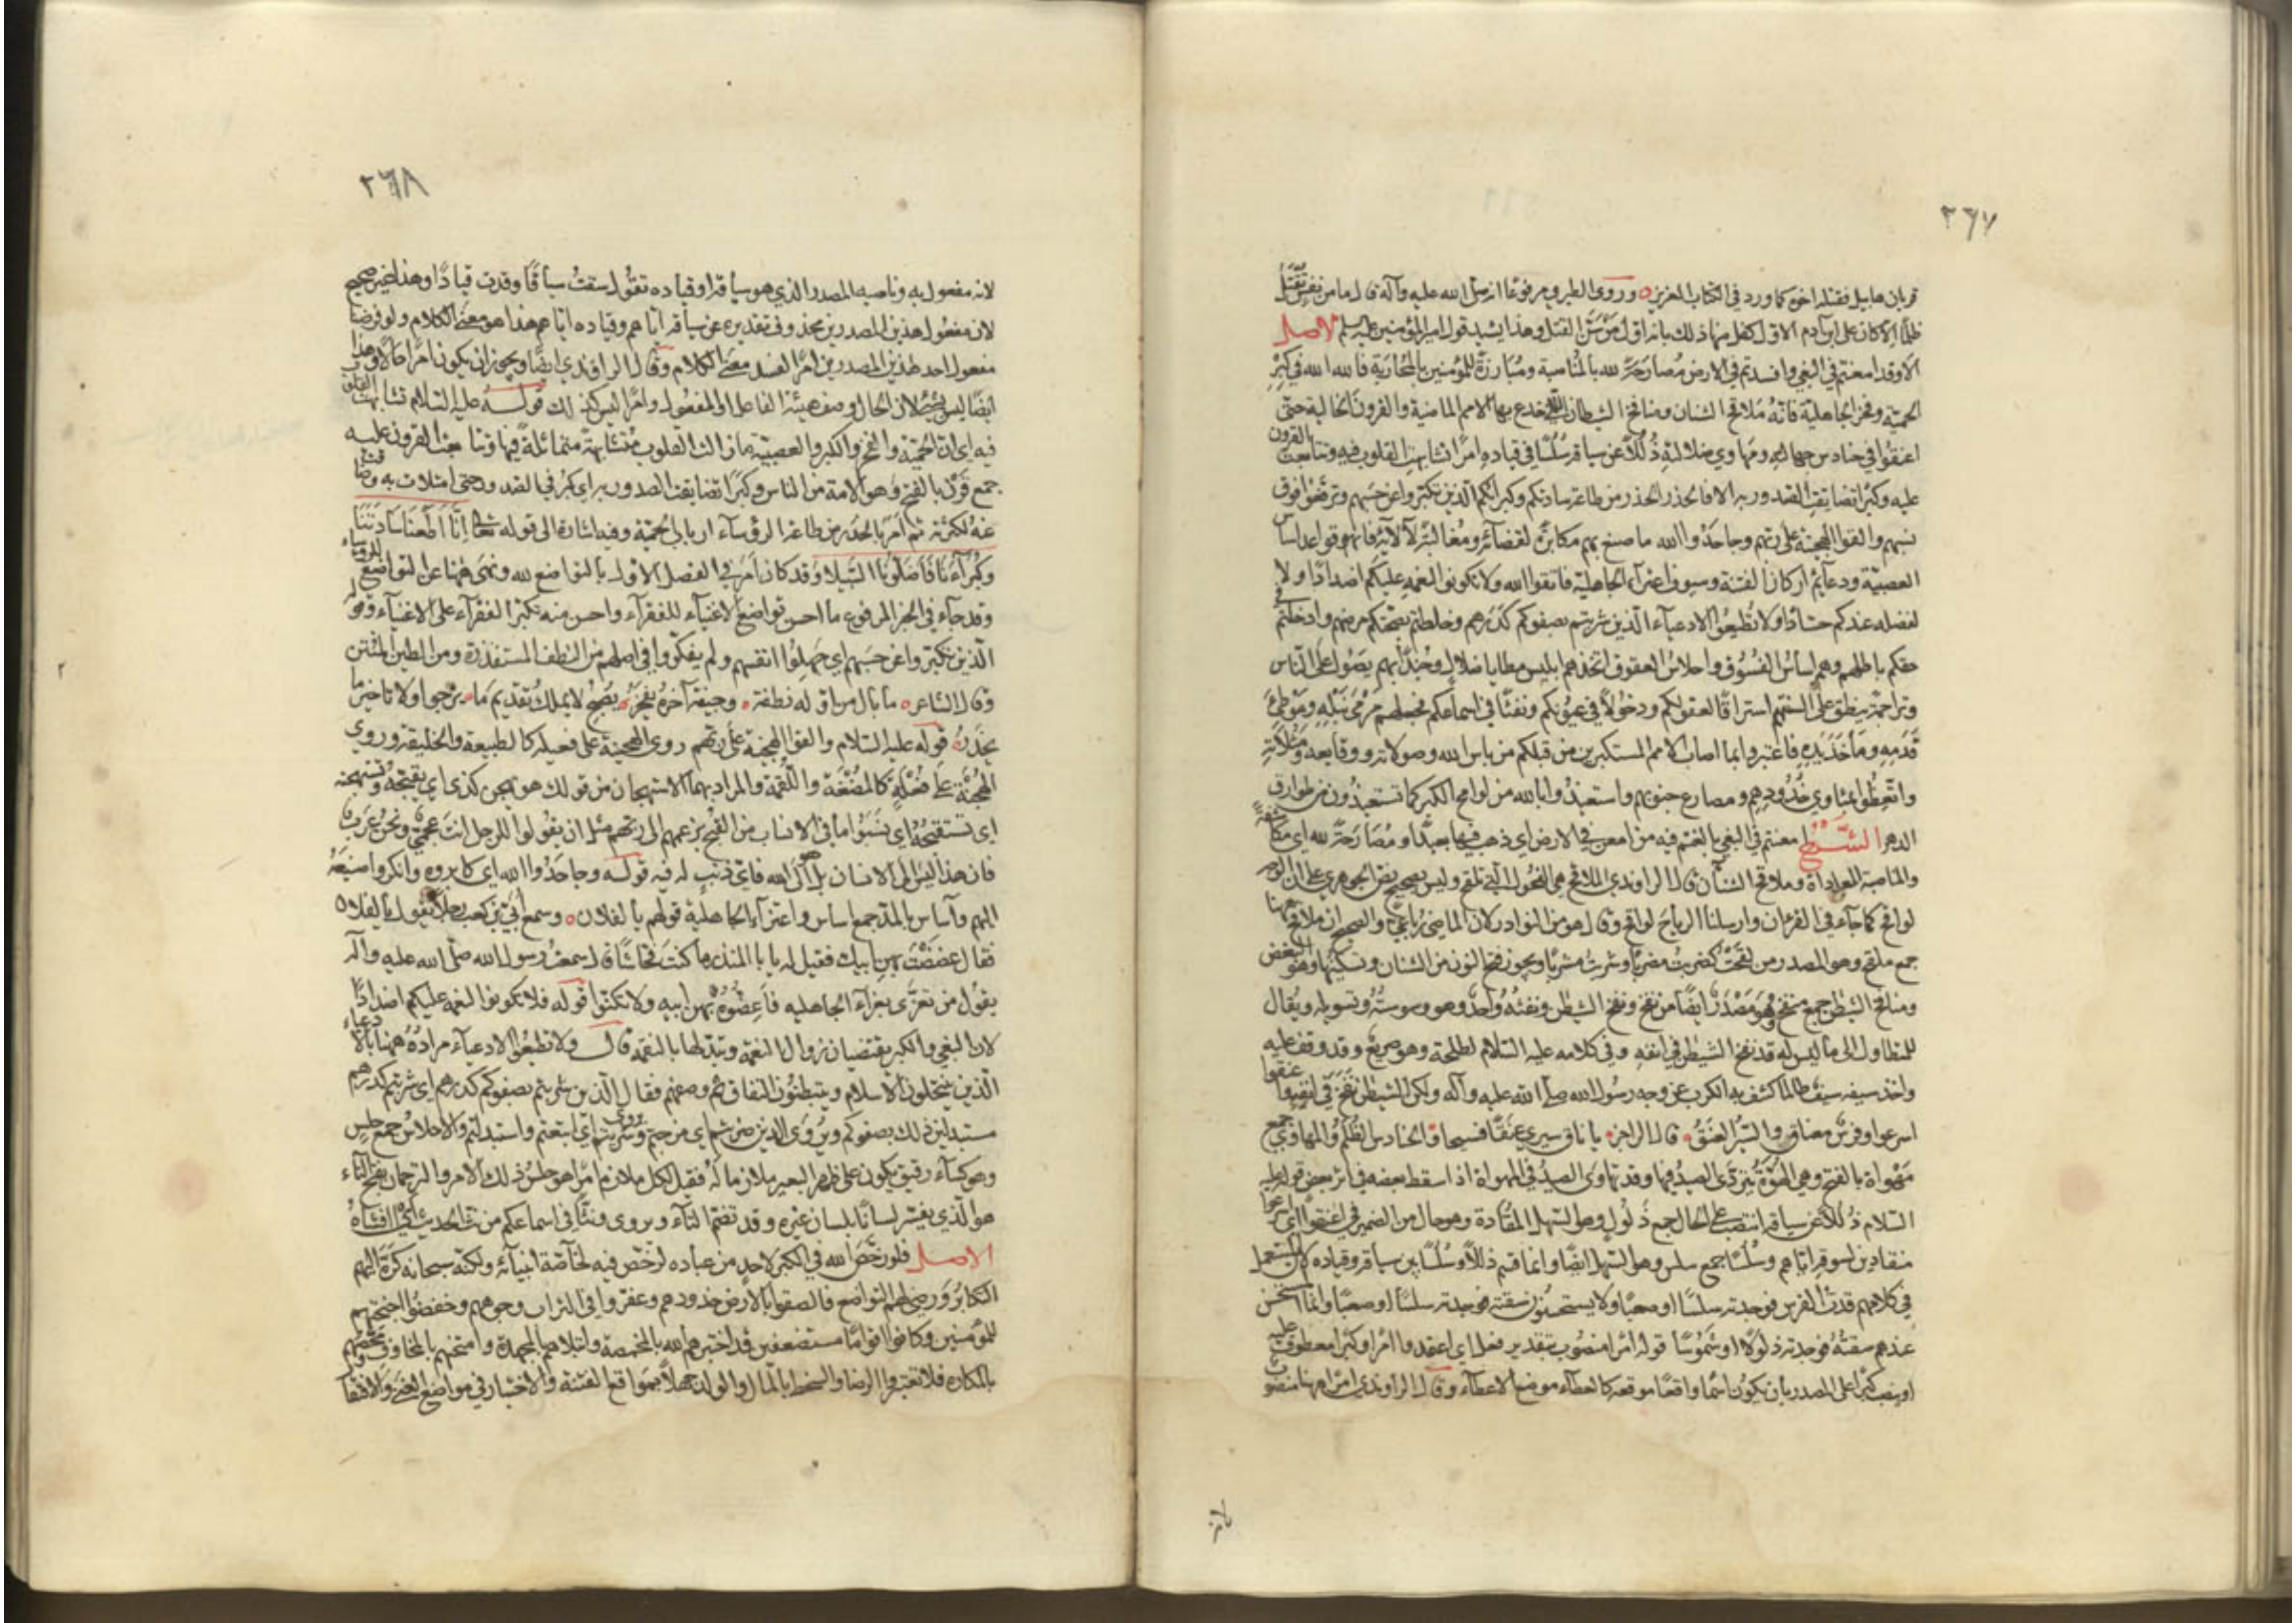 ٢٦٧
قربان هابيل فقتله اخوه كما ورد في الكتاب العزيز وروى الطبري مرفوعا انه صلى الله عليه وآله قال ما من نفس تقتل
ظلما الا كان على ابن آدم الاول كفل منها ذلك بانه اول من سن القتل وهذا يشيد قول امير المؤمنين عليه السلم الاصل
الا وقد امعنتم في البغي وافسدتم في الارض مصارحة لله بالمناصبة ومبارزة للمؤمنين بالمحاربة فالله الله في كبر
الحمية وفخر الجاهلية فانه ملاقح الشنان ومنافخ الشيطان التي خدع بها الامم الماضية والقرون الخالية حتى
اعنقوا في حنادس جهالته ومهاوي ضلالته ذللا عن سياقه سلسا في قياده امرا تشابهت القلوب فيه وتتابعت القرون
عليه وكبرا تضايقت الصدور به الا فالحذر الحذر من طاعة ساداتكم وكبرائكم الذين تكبروا عن حسبهم وترفعوا فوق
نسبهم والقوا الهجينة على ربهم وجاحدوا الله ما صنع بهم مكابرة لقضائه ومغالبة لآلائه فانهم قواعد اساس
العصبية ودعائم اركان الفتنة وسيوف اعتزاء الجاهلية فاتقوا الله ولا تكونوا لنعمه عليكم اضدادا ولا
لفضله عندكم حسادا ولا تطيعوا الادعياء الذين شربتم بصفوكم كدرهم وخلطتم بصحتكم مرضهم وادخلتم في
حقكم باطلهم وهم اساس الفسوق واحلاس العقوق اتخذهم ابليس مطايا ضلال وجندا بهم يصول على الناس
وتراجمة ينطق على السنتهم استراقا لعقولكم ودخولا في عيونكم ونفثا في اسماعكم فجعلهم مرمى نبله وموطئ
قدمه ومأخذ يده فاعتبروا بما اصاب الامم المستكبرين من قبلكم من باس الله وصولاته ووقايعه ومثلاته
واتعظوا بمثاوي خدودهم ومصارع جنوبهم واستعيذوا بالله من لواقح الكبر كما تستعيذون من طوارق
الدهر الشرح امعنتم في البغي بالغتم فيه من امعن في الارض اي ذهب فيها بعيدا ومصارحة لله اي مكاشفة
والمناصبة المعاداة وملاقح الشنآن قال الراوندي الملاقح هي الفحول التي تلقح وليس بصحيح نص الجوهري على ان الوجه
لواقح كما جاء في القرءان وارسلنا الرياح لواقح وقال هو من النوادر لان الماضي رباعي والصحيح ان ملاقح ههنا
جمع ملقح وهو المصدر من لقحت كضربت مضربا وشربت مشربا ويجوز فتح النون من الشنان وتسكينها وهو البغض
ومنافخ الشيطن جمع منفخ وهو مصدر ايضا من نفخ ونفخ الشيطن ونفثه واحد وهو وسوسته وتسويله ويقال
للمتطاول الى ما ليس له قد نفخ الشيطن في انفه وفي كلامه عليه السلام لطلحة وهو صريع وقد وقف عليه
واخذ سيفه سيف طالما كشف به الكرب عن وجه رسول الله صلى الله عليه وآله ولكن الشيطن نفخ في انفه واعنقوا
اسرعوا وفرس معناق والسير العنق قال الراجز يا ناق سيري عنقا فسيحا والحنادس الظلم والمهاوي جمع
مهواة بالفتح وهي الهوة يتردى الصيد فيها وقد تهاوى الصيد في المهواة اذا سقط بعضه في اثر بعض قوله عليه
السلام ذللا عن سياقه انتصب على الحال جمع ذلول وهو السهل المقادة وهو حال من الضمير في اعنقوا اي اسرعوا
منقادين لسوقه اياهم وسلسا جمع سلس وهو السهل ايضا وانما قسم ذللا وسلسا بين سياقه وقياده لان المستعمل
في كلامهم قدت الفرس فوجدته سلسا او صعبا ولا يستحسنون سقته فوجدته سلسا او صعبا وانما المستحسن
عندهم سقته فوجدته ذلولا او شموسا قوله امرا منصوب بتقدير فعل اي اعتمدوا امرا وكبرا معطوف عليه
او ينصب كبرا على المصدر بان يكون اسما واقعا موقعه كالعطاء موضع الاعطاء وقال الراوندي امرا ههنا منصوب
٢٦٨
لانه مفعول به وناصبه المصدر الذي هو سياقه او قياده تقول سقت سياقا وقدت قيادا وهذا غير صحيح
لان مفعول هذين المصدرين محذوف تقديره عن سياقه اياهم وقياده اياهم هذا هو معنى الكلام ولو فرضنا
مفعول احد هذين المصدرين امرا لفسد معنى الكلام وقال الراوندي ايضا ويجوز ان يكون امرا حالا وهذا
ايضا ليس بشيء لان الحال وصف هيئة الفاعل او المفعول وامرا ليس كذلك قوله عليه السلام تشابهت القلوب
فيه اي ان الحمية والفخر والكبر والعصبية ما زالت القلوب متشابهة متماثلة فيها وتتابعت القرون عليه
جمع قرن بالفتح وهو الامة من الناس وكبرا تضايقت الصدور به اي كبر في الصدور حتى امتلات به وضاقت
عنه لكثرته ثم امر بالحذر من طاعة الرؤساء ارباب الحمية وفيه اشارة الى قوله تعالى انا اطعنا سادتنا
وكبراءنا فاضلونا السبيلا وقد كان امر في الفصل الاول بالتواضع لله ونهى ههنا عن التواضع للرؤساء
وقد جاء في الخبر المرفوع ما احسن تواضع الاغنياء للفقراء واحسن منه تكبر الفقراء على الاغنياء وقوله
الذين تكبروا عن حسبهم اي جهلوا انفسهم ولم يفكروا في اصلهم من النطف المستقذرة ومن الطين المنتن
وقال الشاعر ما بال من اوله نطفة وجيفة آخره يفخر يصبح لا يملك تقديم ما يرجو ولا تاخير ما
يحذر قوله عليه السلام والقوا الهجينة على ربهم روى الهجينة على فعيلة كالطبيعة والخليقة وروي
الهجنة على فعلة كالمضغة واللقمة والمراد بهما الاستهجان من قولك هو يهجن كذى اي يقبحه وتستهجنه
اي تستقبحه اي نسبوا ما في الانساب من القبح بزعمهم الى ربهم مثل ان يقولوا للرجل انت عجمي ونحن عرب
فان هذا ليس الى الانسان بل هو الى الله فاي ذنب له فيه قوله وجاحدوا الله اي كابروه وانكروا صنيعه
اليهم وآساس بالمد جمع اساس واعتزاء الجاهلية قولهم يا لفلان وسمع ابي بن كعب رجلا يقول يا لفلان
فقال عضضت بهن ابيك فقيل له يا ابا المنذر ما كنت فحاشا قال سمعت رسول الله صلى الله عليه وآله
يقول من تعزى بعزاء الجاهليه فاعضوه بهن ابيه ولا تكنوا قوله فلا تكونوا لنعمه عليكم اضدادا
لان البغي والكبر يقتضيان زوال النعمة وتبدلها بالنقمه قال ولا تطيعوا الادعياء مراده ههنا بالادعياء
الذين ينتحلون الاسلام ويتبطنون النفاق ثم وصفهم فقال الذين شربتم بصفوكم كدرهم اي شربتم كدرهم
مستبدلين ذلك بصفوكم ويروى الذين ضربتم اي مزجتم ويروى شريتم اي ابتعتم واستبدلتم والاحلاس جمع حلس
وهو كساء رقيق يكون على ظهر البعير ملازما له فقيل لكل ملازم امرا هو حلس ذلك الامر والترجمان بفتح التاء
هو الذي يفسر لسانا بلسان غيره وقد تضم التاء ويروى ونثا في اسماعكم من نث الحديث اي افشاه
الاصل فلو رخص الله في الكبر لاحد من عباده لرخص فيه لخاصة انبيائه ولكنه سبحانه كره اليهم
التكابر ورضي لهم التواضع فالصقوا بالارض خدودهم وعفروا في التراب وجوههم وخفضوا اجنحتهم
للمؤمنين وكانوا اقواما مستضعفين قد اختبرهم الله بالمخمصة وابتلاهم بالمجهدة وامتحنهم بالمخاوف ومخضهم
بالمكاره فلا تعتبروا الرضا والسخط بالمال والولد جهلا بمواقع الفتنة والاختبار في مواضع الغنى والاقتار